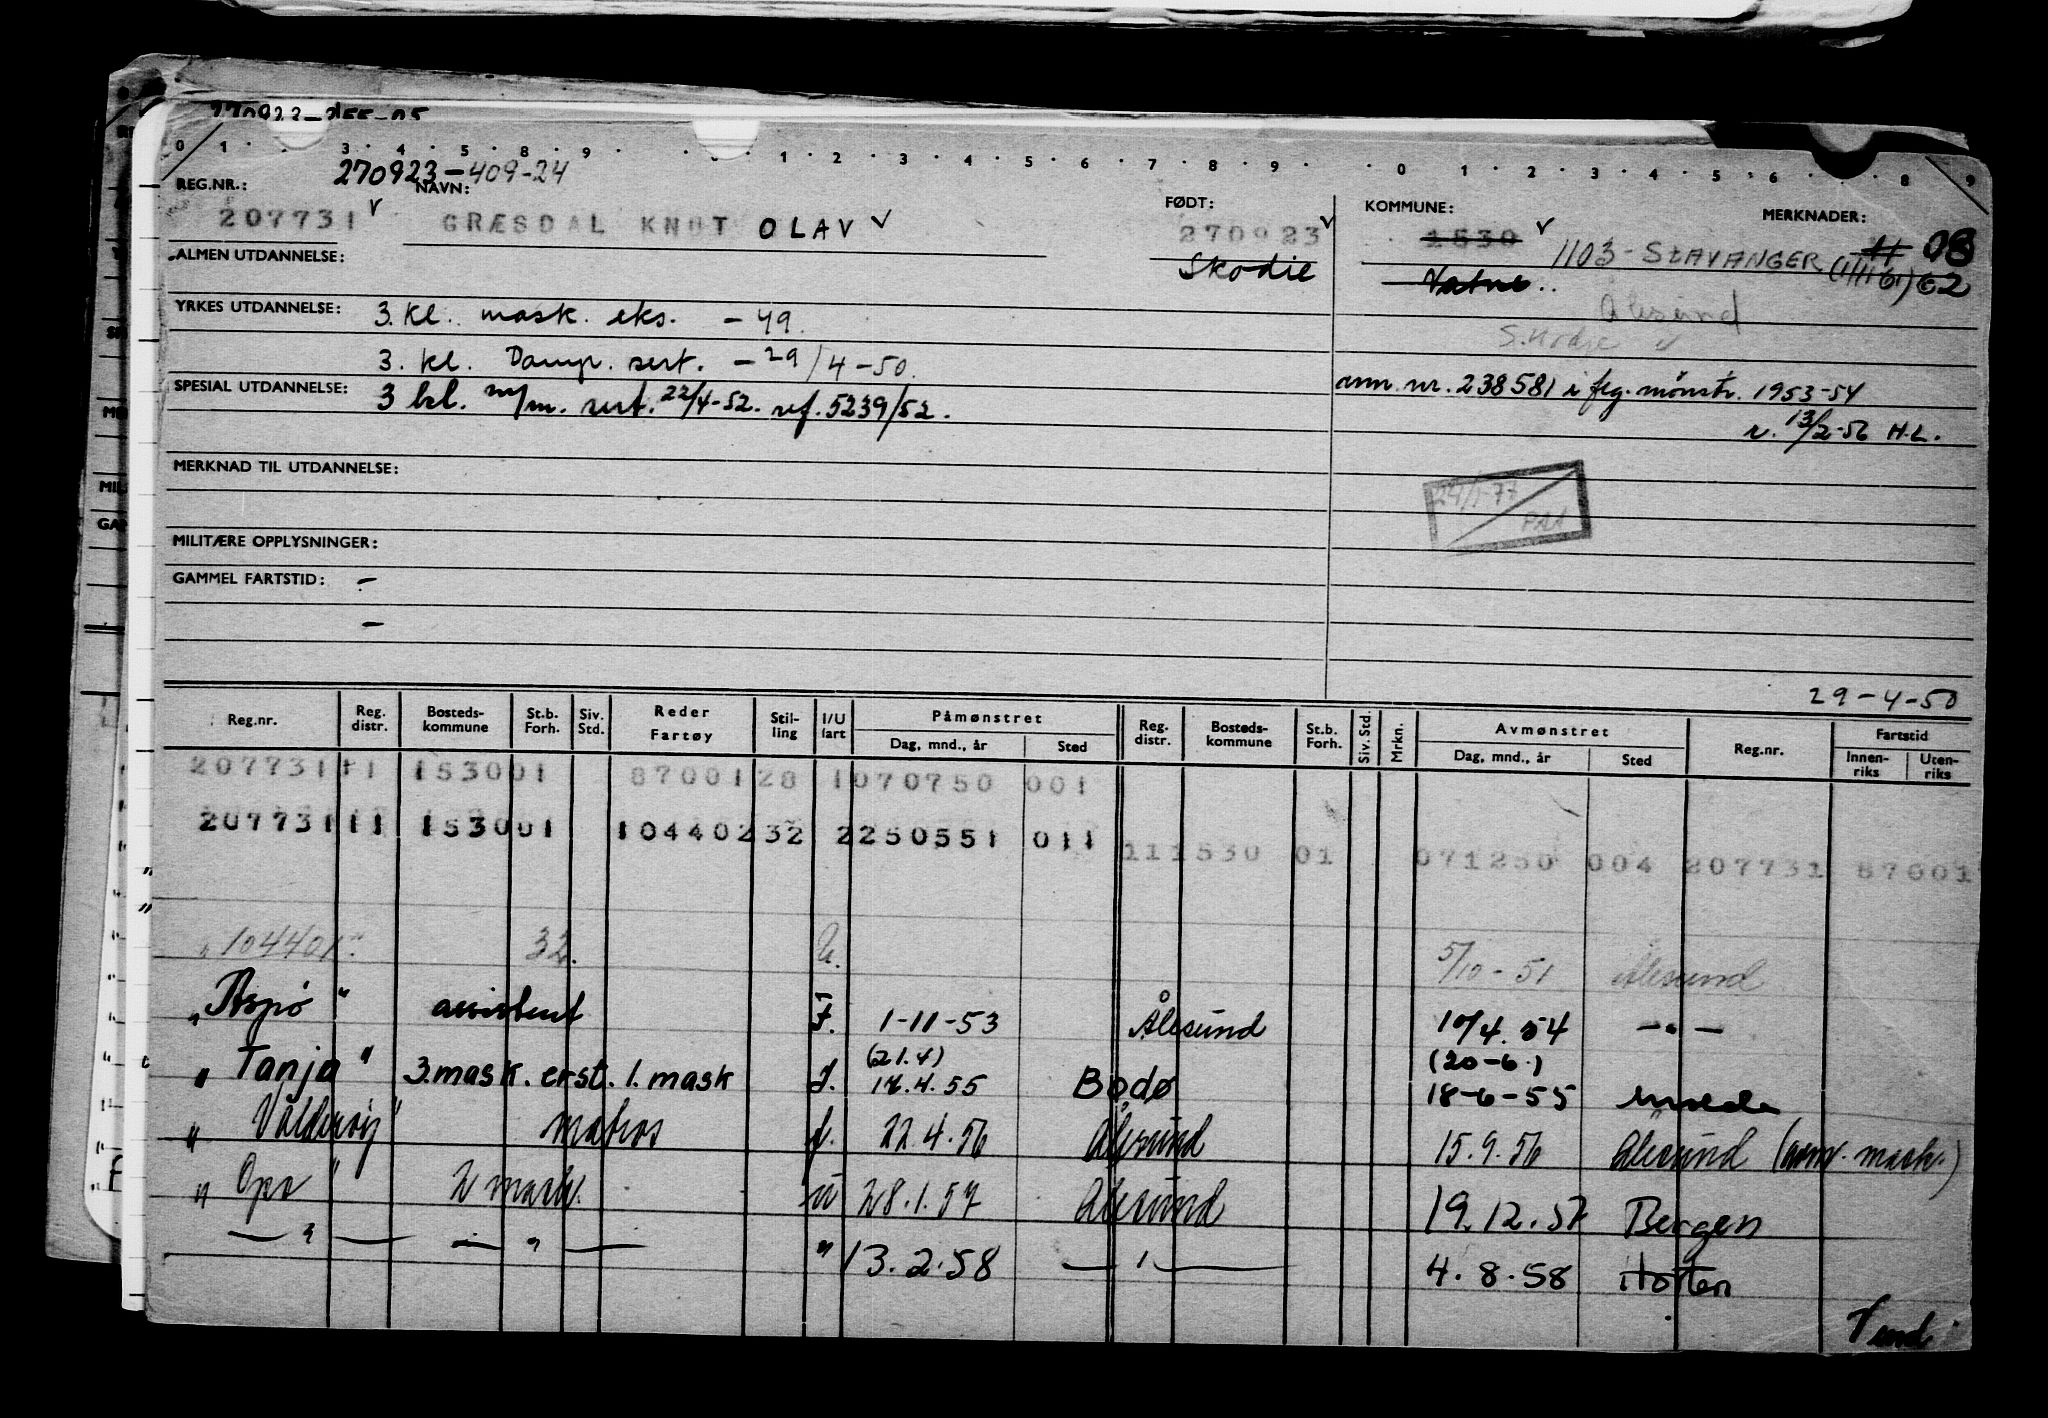 0 1 3 4 5 8 9 1 2 3 4 5 6 7 8 9 0 1 2 3 4 5 6 8 9
270923-409-24
REG.NR.: NAVN: FØDT: KOMMUNE: MERKNADER:
207731 GRÆSDAL KNUT OLAV 270923 1530 1103-STAVANGER 11 08
ALMEN UTDANNELSE: Skodie Vatne (1/11 61) 62
YRKES UTDANNELSE: 3. kl. mask. eks. - 49. Ålesund
3. kl. Damp. sert. - 29/4-50. Skodje
SPESIAL UTDANNELSE: 3 kl. m/m. sert. 22/4-52. ref. 5239/52. anm. nr. 238581 i feg. mønstr. 1953-54
r. 13/2-56 H.L.
MERKNAD TIL UTDANNELSE:
24/1-77
MILITÆRE OPPLYSNINGER:
GAMMEL FARTSTID: -
-
29-4-50
Reg.nr. Reg. distr. Bosteds-kommune St.b. Forh. Siv. Std. Reder Fartøy Stil-ling I/U fart Påmønstret Dag, mnd., år Sted Reg. distr. Bosteds-kommune St.b. Forh. Siv. Std. Mrkn. Avmønstret Dag, mnd., år Sted Reg.nr. Fartstid Innen-riks Uten-riks
207731 11 153001 87001 28 1 070750 001
207731 11 153001 104402 32 2 250551 011
111530 01 071250 004 207731 87001
"104401" 32. U. 5/10-51 Ålesund
"Aspø" assistent I. 1-11-53 Ålesund 10/4.54 -"-
(21.4) (20-6.)
"Tanja" 3.mask. erst. 1. mask I. 18.4.55 Bodø 18-6-55 Molde
"Valderøy" matros I. 22.4.56 Ålesund 15.9.56 Ålesund (anm. mask.)
"Ops" 2 mask. U 28.1.57 Ålesund 19.12.57 Bergen
-"- -"- " 13.2.58 -"- 4.8.58 Horten
Vend